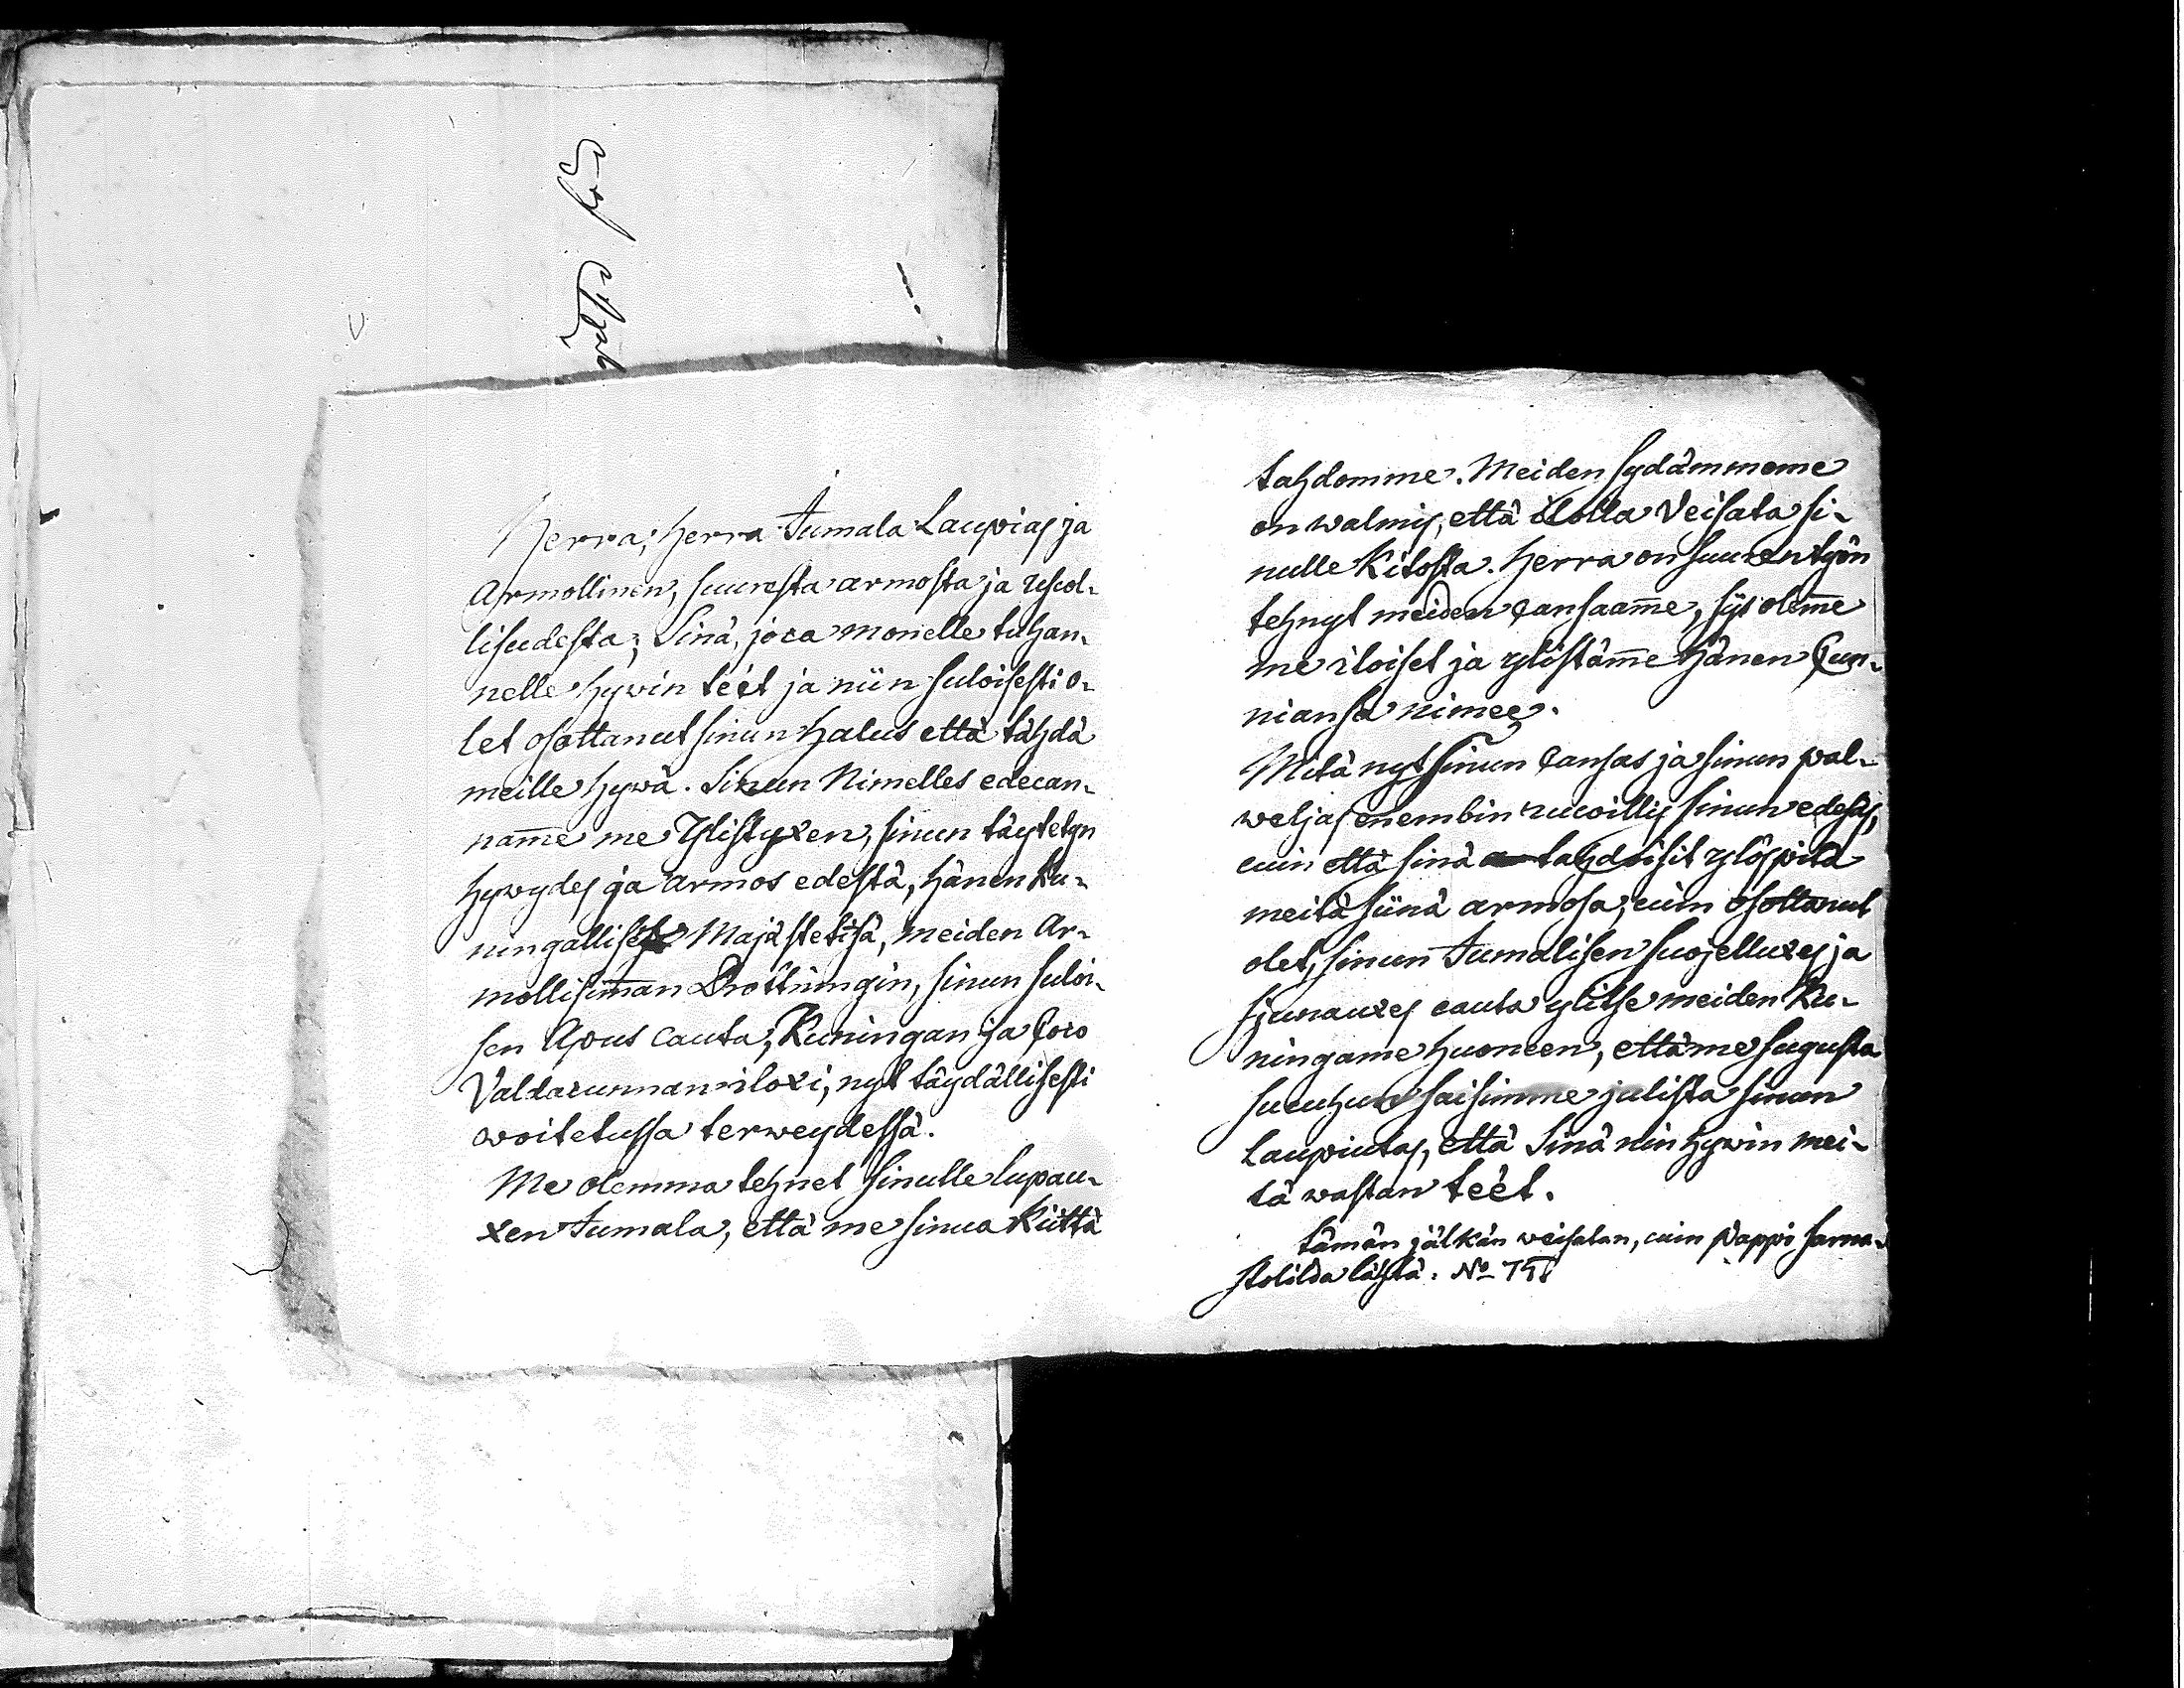 Herra, Herra Jumala Laupias ja
Armollinen, suuresta armosta ja uscol-
lisudesta; Sinä, joca monelle tuhan-
nelle hywin teét ja niin suloisesti o-
let osottanut sinun halus että tähdä
meille hywä. Sinun Nimelles edecan-
nam̄e me Ylistyxen, sinun täytetyn
hywydes ja armos edestä, hänen Ku-
ningallisest Majästetisä, meiden Ar-
mollisim̄an Drottningin, sinun suloi-
sen Apus cauta, Kuningan ja Coco
Valdacunnan iloxi, nyt täydällisesti
woitetussa terweydessä.
Me olemma tehnet sinulle lupau-
xen Jumala, että me sinua kiittä
tahdomme. Meiden sydämmeme
on walmis, että ilolla Veisata si-
nulle Kitosta. Herra on suuren työn
tehnyt meiden Cansaam̄e, sijs olem̄e
me iloiset ja ylistäm̄e hänen Cun-
niansa nimee.
Mitä nyt sinun Cansas ja sinun pal-
weljas enembin rucoillis sinun edesäs,
cuin että sinä tahdoisit ylöspitä
meitä siinä armosa, cuin osottanut
olet, sinun Jumalisen suojelluxes ja
sjunauxes cauta ylitse meiden Ku-
ningame huoneen, että me sugusta
sucuhun saisimme julista sinun
Laupiutas, että Sinä nin hywin mei-
tä wastan teét.
Tämän jälkän veisatan, cuin Pappi Sarna-
stolilda lähtä. No